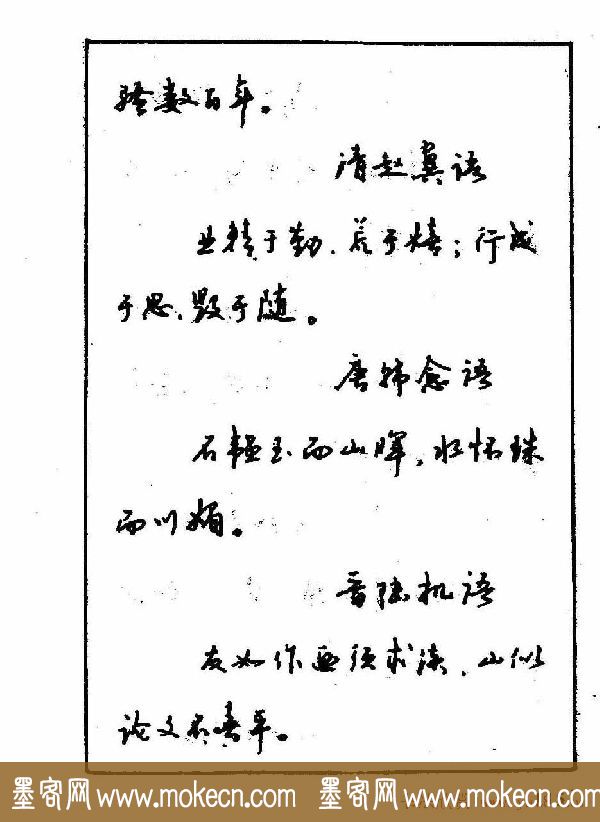 骚数百年。
清赵翼语
业精于勤、荒于嬉；行成
于思、毁于随。
唐韩愈语
石韫玉而山晖，水怀珠
而川媚。
晋陆机语
友如作画须求淡，山似
论文不喜平。
墨客网 www.mokecn.com 墨客网 www.mokecn.com